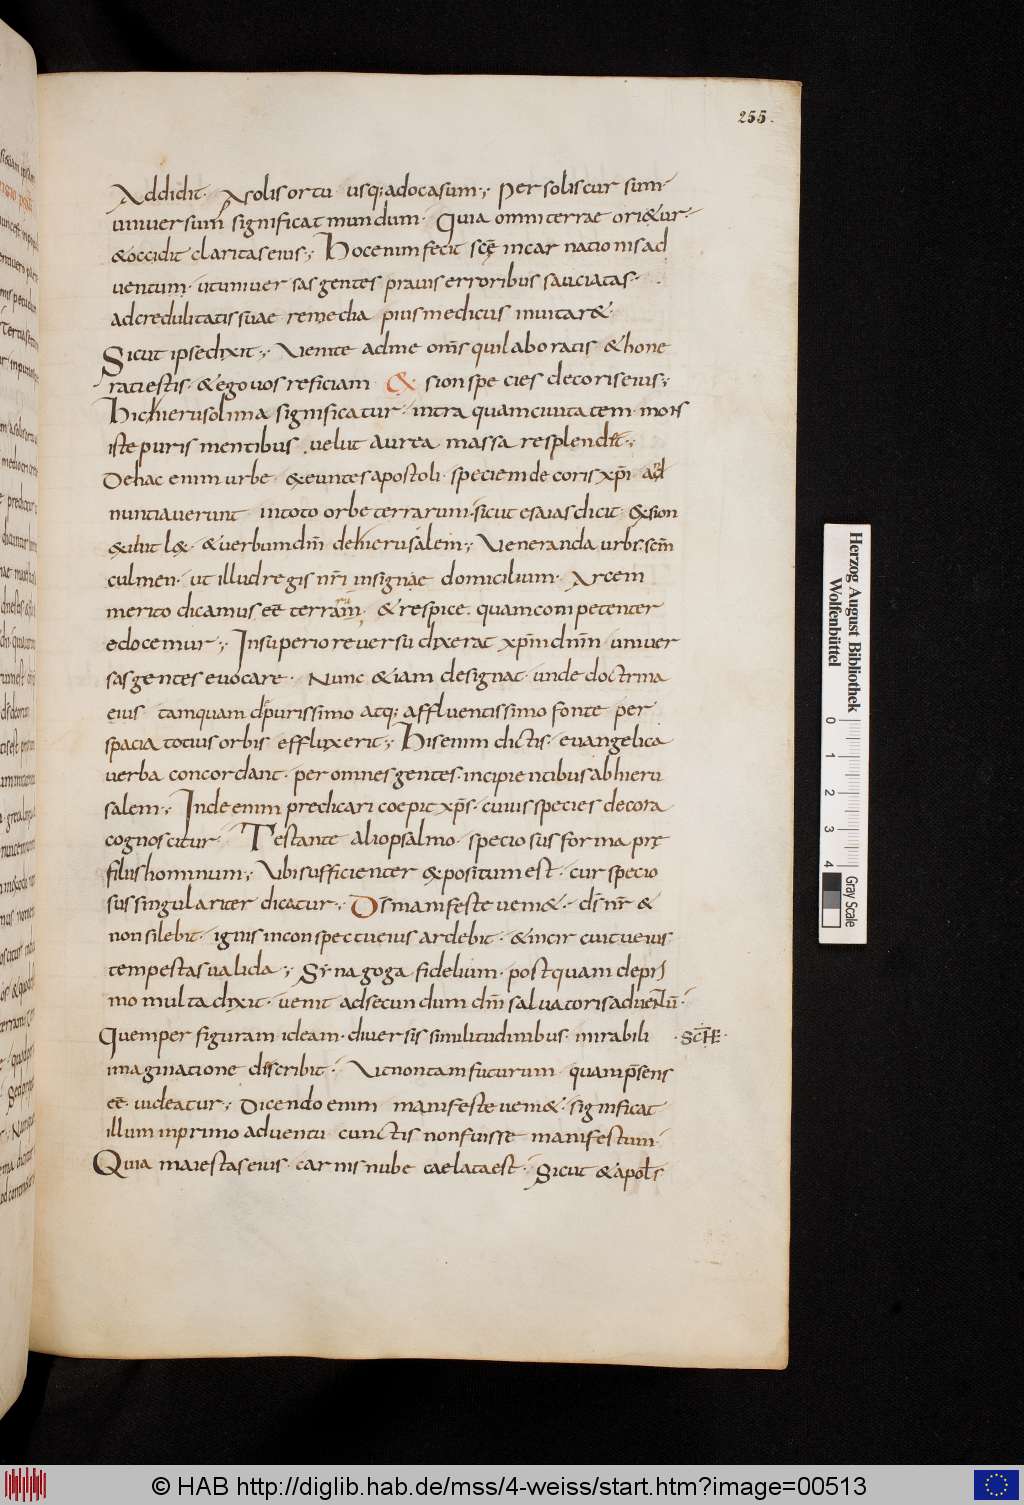 255.
Addidit· A solis ortu usq; ad ocasum·; Per solis cur sum·
universum significat mundum· Quia omni terrae ori&ur·
& occidit claritas eius·; Hoc enim fecit scę incarnationis ad
uentum· ut universas gentes pravis erroribus sauciatas·
ad credulitatis suae remedia pius medicus invitar&·
Sicut ipse dixit·; Venite ad me oms̄ qui laboratis & hone
rati estis· & ego vos reficiam & sion species decoris eius·;
Hic hierusolima significatur· intra quam civitatem· mons
iste puris mentibus velut aurea massa resplendit·;
De hac enim urbe· & euntes apostoli· speciem decoris xp̄i ad
nuntiaverunt in toto orbe terrarum· sicut esaias dicit· & sion
exibit lex· & verbum dn̄i de hierusalem·; Veneranda urbs· scm̄
culmen· ut illud regis nr̄i insignae domicilium· Arcem
merito dicamus eē terrarū· & respice· quam competenter
edocemur·; In superiore versu dixerat xpm̄ dnm̄ univer
sas gentes evocare· Nunc & iam designat· unde doctrina
eius tamquam de purissimo atq; affluentissimo fonte per
spacia totius orbis effluxerit·; His enim dictis· evangelica
verba concordant· per omnes gentes· incipientibus ab hieru
salem·; Inde enim predicari coepit xps̄· cuius species decora
cognoscitur· Testante alio psalmo· speciosus forma prę
filiis hominum·; Ubi sufficienter expositum est· cur specio
sus singulariter dicatur·; Ds̄ manifeste veni&· ds̄ nr̄ &
non silebit· ignis in conspectu eius ardebit· & in circuitu eius
tempestas valida·; Synagoga fidelium· postquam de pri
mo multa dixit· venit ad secundum dn̄i salvatoris adventū·
Quem per figuram ideam· diversis similitudinibus· mirabili ·SCHE·
imaginatione describit· Ut non tam futurum quam p̄sens
eē videatur·; Dicendo enim manifeste veni&· significat
illum in primo adventu cunctis non fuisse manifestum·
Quia maiestas eius· carnis nube caelata est· Sicut & apols̄
Herzog August Bibliothek
Wolfenbüttel
0 1 2 3 4 Gray Scale
© HAB http://diglib.hab.de/mss/4-weiss/start.htm?image=00513